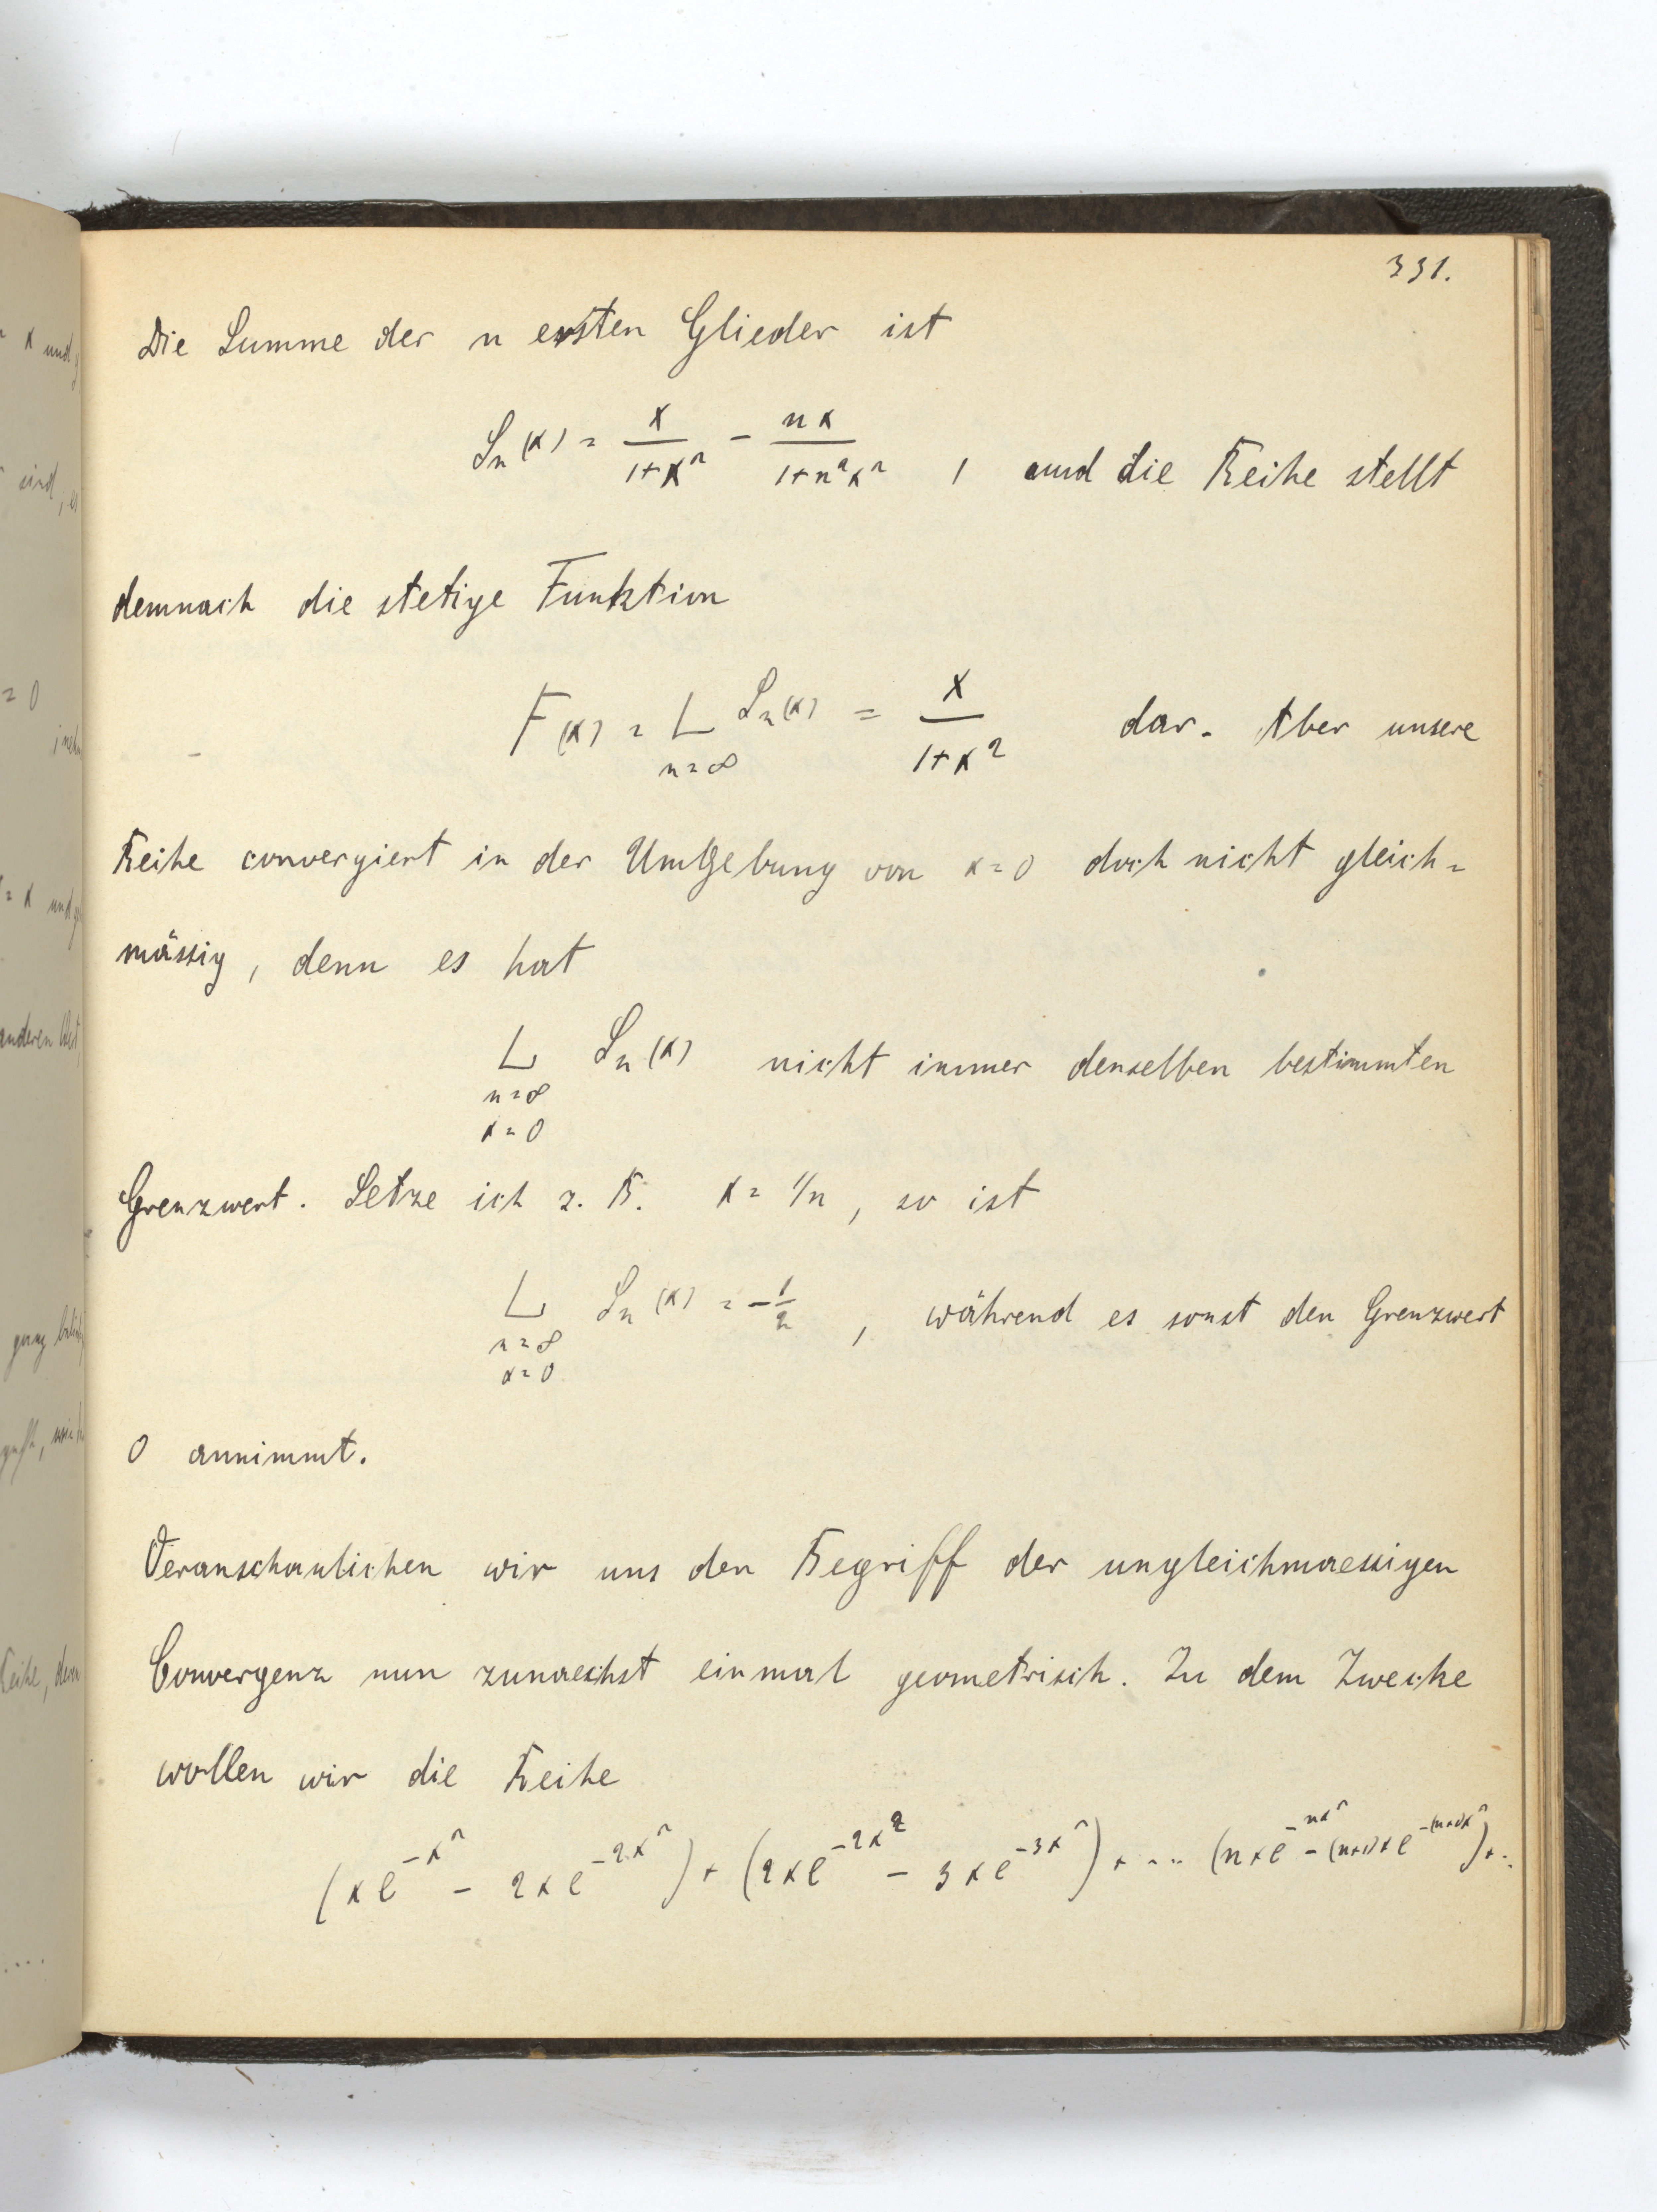 331.
Die Summe der n ersten Glieder ist
Sn(x) = x/(1+x²) − nx/(1+n²x²), und die Reihe stellt
demnach die stetige Funktion
F(x) = L Sn(x) = x/(1+x²) dar. Aber unsere
n=∞
Reihe convergiert in der Umgebung von x=0 doch nicht gleich=
mässig, denn es hat
L Sn(x) nicht immer denselben bestimmten
n=∞
x=0
Grenzwert. Setze ich z. B. x = 1/n, so ist
L Sn(x) = −1/2, während es sonst den Grenzwert
n=∞
x=0
0 annimmt.
Veranschaulichen wir uns den Begriff der ungleichmaessigen
Convergenz nun zunaechst einmal geometrisch. Zu dem Zwecke
wollen wir die Reihe
(xe^{−x²} − 2xe^{−2x²}) + (2xe^{−2x²} − 3xe^{−3x²}) + ... (nxe^{−nx²} − (n+1)xe^{−(n+1)x²}) + ..
x und
sind, es
= 0
= x und
anderen
ganz
Reihe, denn
....